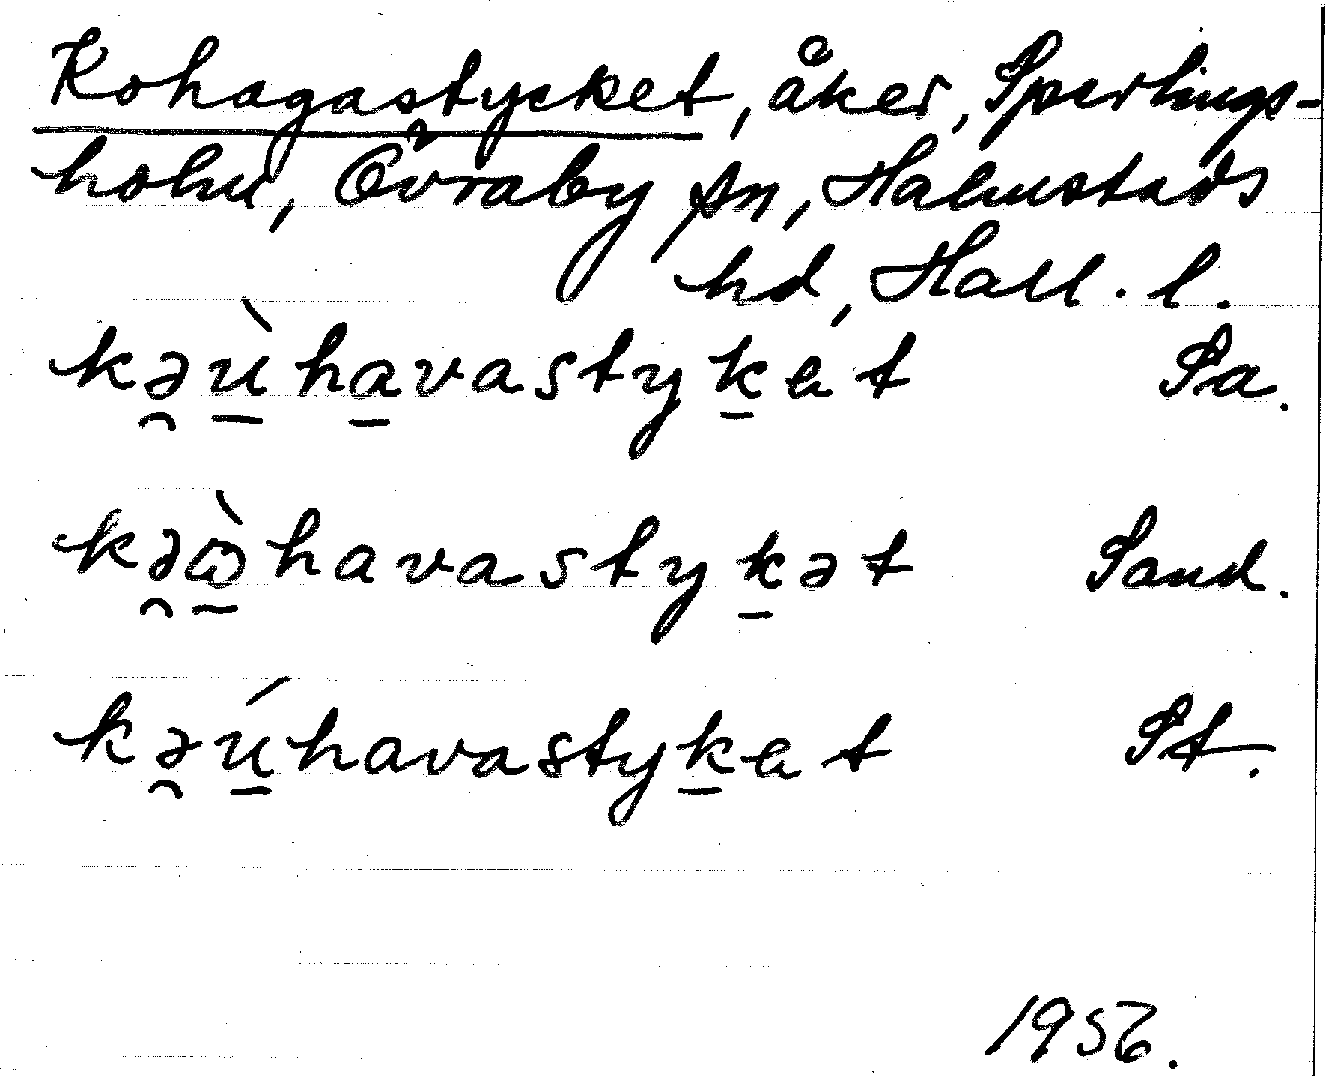 Kohagastycket, åker, Sperlings-
holm, Övraby sn, Halmstads
hd, Hall. l.
kə̯ù̱ha̱vastyḵet Sa.
kə̯ὼ̱havastyḵət Sand.
kə̯ú̱havastyḵet St.
1956.